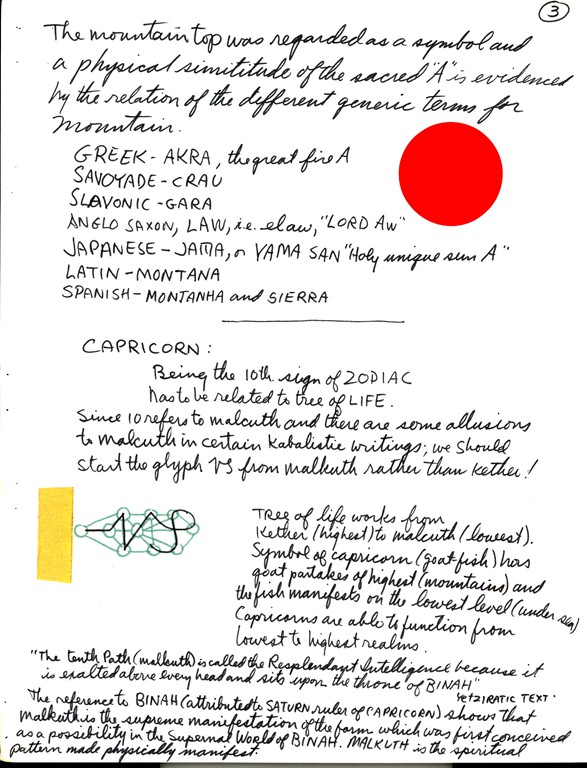 3
The mountain top was regarded as a symbol and
a physical similitude of the sacred "A" is evidenced
by the relation of the different generic terms for
mountain.
GREEK - AKRA, the great fire A
SAVOYADE - CRAU
SLAVONIC - GARA
ANGLO SAXON, LAW, i.e. elaw, "LORD Aw"
JAPANESE - JAMA, or YAMA SAN "Holy unique sun A"
LATIN - MONTANA
SPANISH - MONTANHA and SIERRA
CAPRICORN:
Being the 10th sign of ZODIAC
has to be related to tree of LIFE.
Since 10 refers to malcuth and there are some allusions
to malcuth in certain Kabalistic writings; we should
start the glyph VS from malkuth rather than Kether!
Tree of life works from
Kether (highest) to malcuth (lowest).
Symbol of capricorn (goat-fish) has
goat partakes of highest (mountains) and
the fish manifests on the lowest level (under sea)
Capricorns are able to function from
lowest to highest realms.
"The tenth Path (malkuth) is called the Resplendant Intelligence because it
is exalted above every head and sits upon the throne of BINAH"
YETZIRATIC TEXT.
The reference to BINAH (attributed to SATURN, ruler of CAPRICORN) shows that
Malkuth is the supreme manifestation of the form which was first conceived
as a possibility in the Supernal World of BINAH. MALKUTH is the spiritual
pattern made physically manifest.